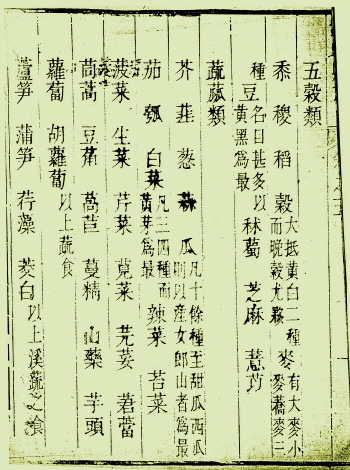 五穀類
黍 稷 稻 穀 大抵黃白二種而晚穀尤夥 麥 有大麥小麥蕎麥三
種 豆 名目甚多以黃黑爲最 秫 芝麻 薏苡
蔬蓏類
芥 韮 葱 蒜 瓜 凡十餘種至甜瓜西瓜則以産女郎山者爲最
茄 瓠 白菜 凡三四種而黃芽爲最 辣菜 苦菜
菠菜 生菜 芹菜 莧菜 芫荽 莙薘
茼蒿 豆角 萵苣 蔓精 山藥 芋頭
蘿蔔 胡蘿蔔 以上蔬食
蘆笋 蒲笋 荇藻 茭白 以上溪蔬之飡